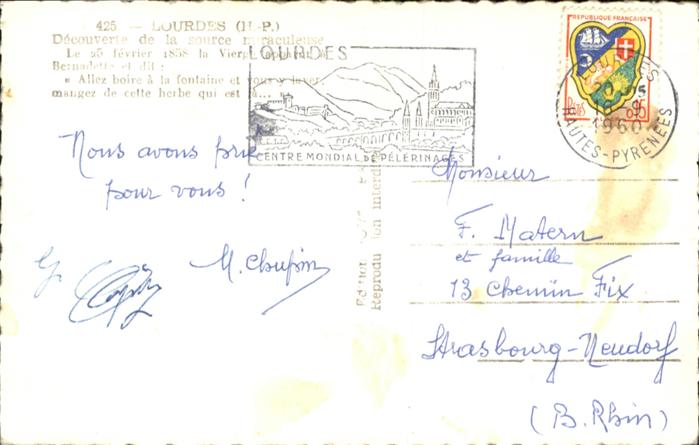 425 — LOURDES (H.-P.)
Découverte de la source miraculeuse
Le 25 février 1858 la Vierge apparut à
Bernadette et dit :
« Allez boire à la fontaine et vous y laver
mangez de cette herbe qui est là... »
LOURDES
CENTRE MONDIAL DE PÈLERINAGES
REPUBLIQUE FRANÇAISE
0,15
LOURDES
1960
HAUTES-PYRENÉES
Nous avons prié
pour vous !
M. Chupin
Reproduction interdite
Monsieur
F. Matern
et famille
13 Chemin Fix
Strasbourg-Neudorf
(B. Rhin)